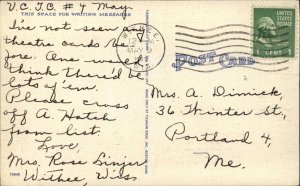 V.C.T.C. #4 May.
THIS SPACE FOR WRITING MESSAGES
I've not seen any
theatre cards be-
fore. One would
think there'd be
lots of 'em.
Please cross
off A. Hatch
from list.
Love,
Mrs. Rose
Withee, Wis.
POST CARD
1 CENT
Mrs. A. Dimick
36 Winter St.,
Portland 4,
Me.